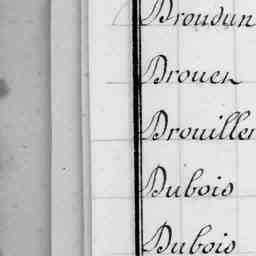 Broudun
Brouer
Brouiller
Dubois
Dubois